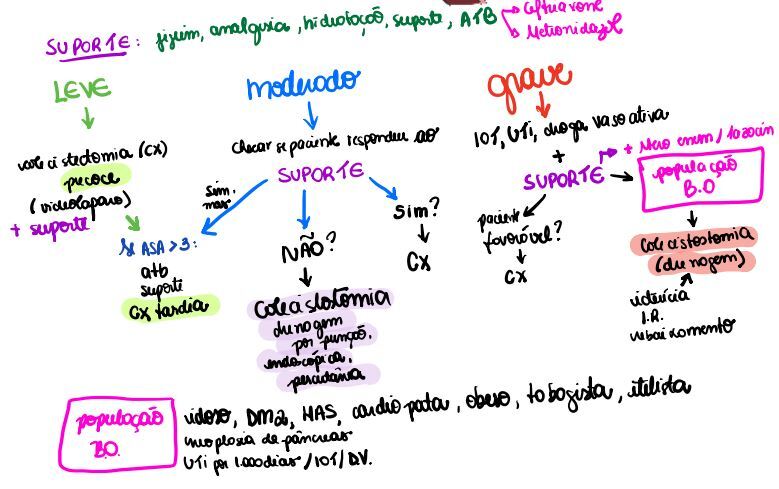 SUPORTE: jejum, analgesia, hidratação, suporte, ATB
Ceftriaxone
Metronidazol
LEVE
colecistectomia (CX)
precoce
(videolaparo)
+ suporte
Se ASA > 3:
atb
suporte
CX tardia
moderado
Checar se paciente respondeu ao
SUPORTE
Sim, mas
NÃO?
Colecistostomia
drenagem
por punção,
endoscópica,
percutânea
Sim?
CX
grave
IOT, UTI, droga vasoativa
+
SUPORTE
+ Mero enem / tazocin
paciente
favorável?
CX
população
B.O
Colecistostomia
(drenagem)
icterícia
I.R.
rebaixamento
população
B.O.
idoso, DM2, HAS, cardiopata, obeso, tabagista, etilista
neoplasia de pâncreas
UTI por 1.000 dias / IOT / DV.